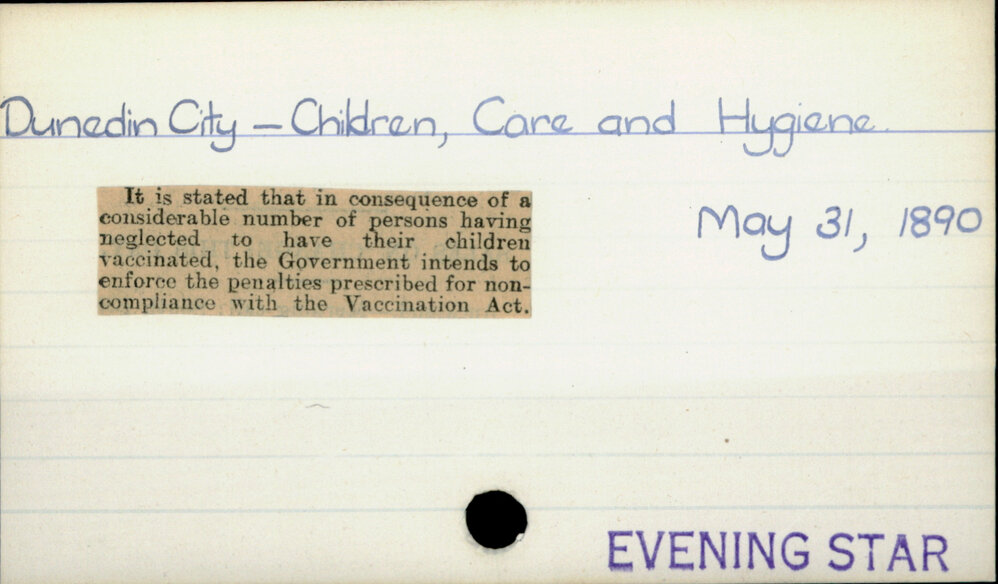 Dunedin City – Children, Care and Hygiene.
It is stated that in consequence of a
considerable number of persons having
neglected to have their children
vaccinated, the Government intends to
enforce the penalties prescribed for non-
compliance with the Vaccination Act.
May 31, 1890
EVENING STAR